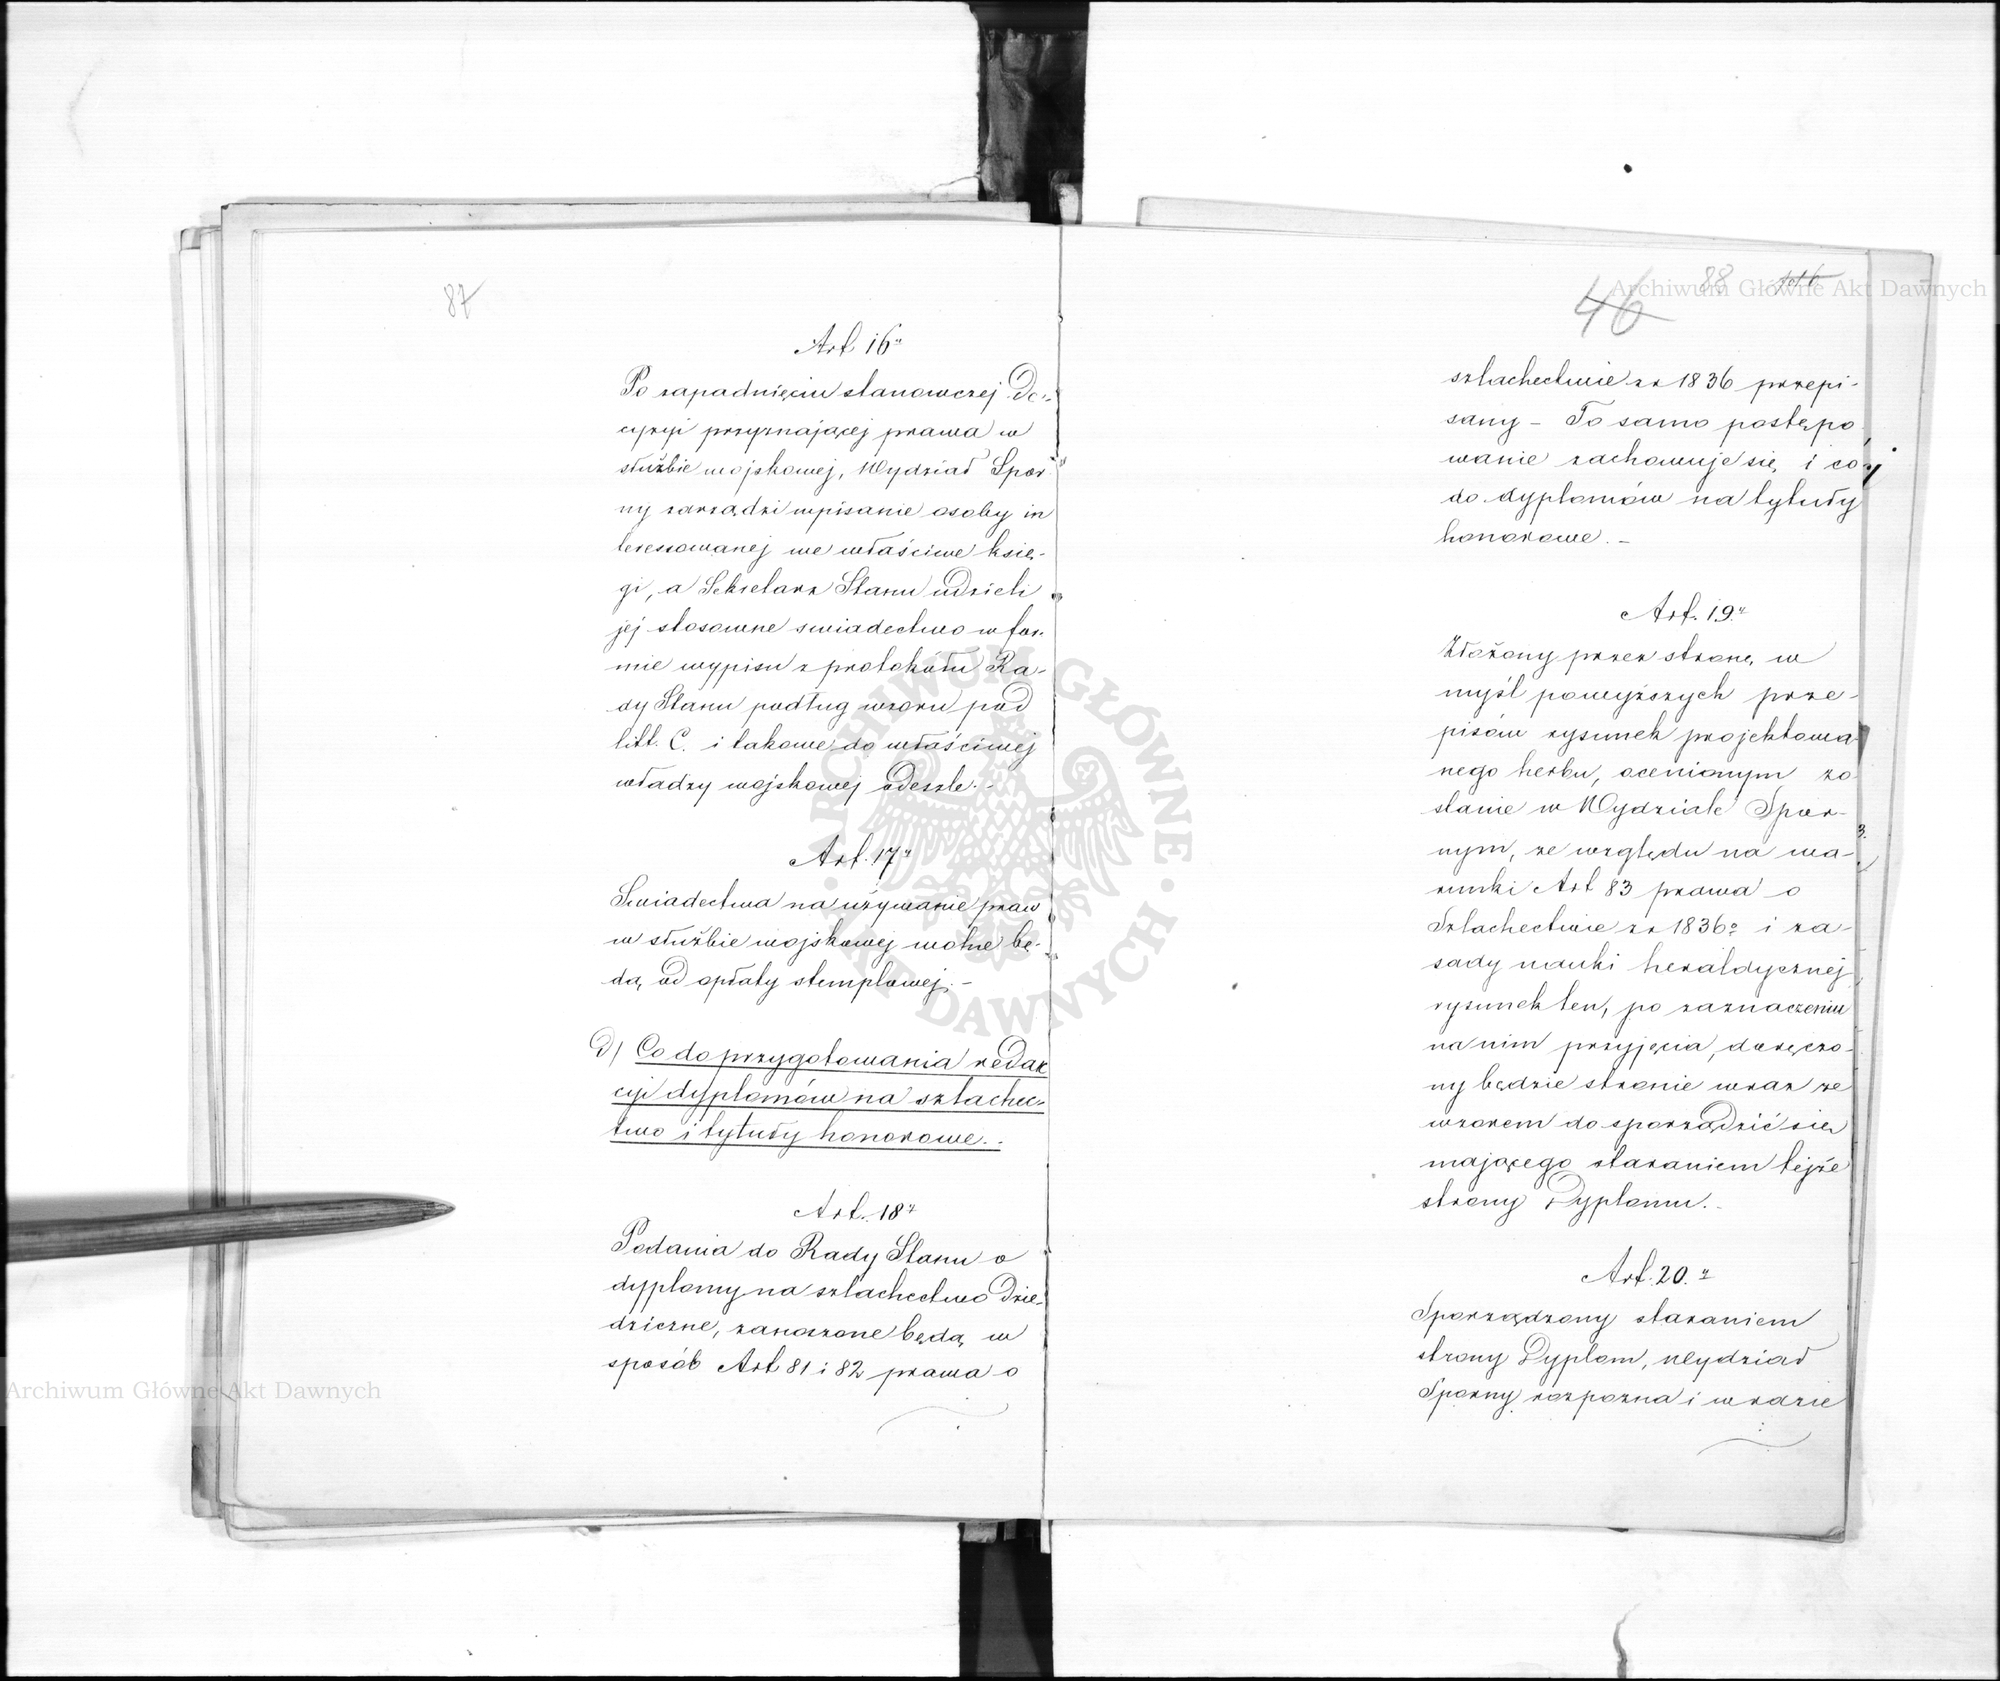 87
Art. 16ty
Po zapadnięciu stanowczej De-
cyzyi przyznającej prawa w
służbie wojskowej, Wydział Spor
ny zarządzi wpisanie osoby in
teressowanej we właściwe księ-
gi, a Sekretarz Stanu udzieli
jej stosowne swiadectwo w for-
mie wypisu z protokółu Ra-
dy Stanu podług wzoru pod
litt. C. i takowe do właściwej
władzy wojskowej odeszle.-
Art. 17y
Swiadectwa na używanie praw
w służbie wojskowej wolne bę-
dą od opłaty stemplowej.-
D/ Co do przygotowania redak
cyi dyplomów na szlachec-
two i tytuły honorowe.-
Art. 18y
Podania do Rady Stanu o
dyplomy na szlachectwo dzie-
dziczne, zanoszone będą w
sposób Art 81 i 82 prawa o
46 88
szlachectwie z r 1836 przepi-
sany - To samo postępo
wanie zachowuje się i co
do dyplomów na tytuły
honorowe.-
Art. 19y
Złożony przez stronę w
myśl powyższych prze-
pisów rysunek projektowa
nego herbu, ocenionym zo
stanie w Wydziale Spor-
nym, ze względu na wa-
runki Art 83 prawa o
Szlachectwie z r 1836o i za-
sady nauki heraldycznej
rysunek ten, po zaznaczeniu
na nim przyjęcia, doręczo-
ny będzie stronie wraz ze
wzorem do sporządzić się
mającego staraniem tejże
strony Dyplomu.-
Art. 20.y
Sporządzony staraniem
strony Dyplom, Wydział
Sporny rozpozna i w razie
Archiwum Główne Akt Dawnych
Archiwum Główne Akt Dawnych
ARCHIWUM GŁÓWNE AKT DAWNYCH